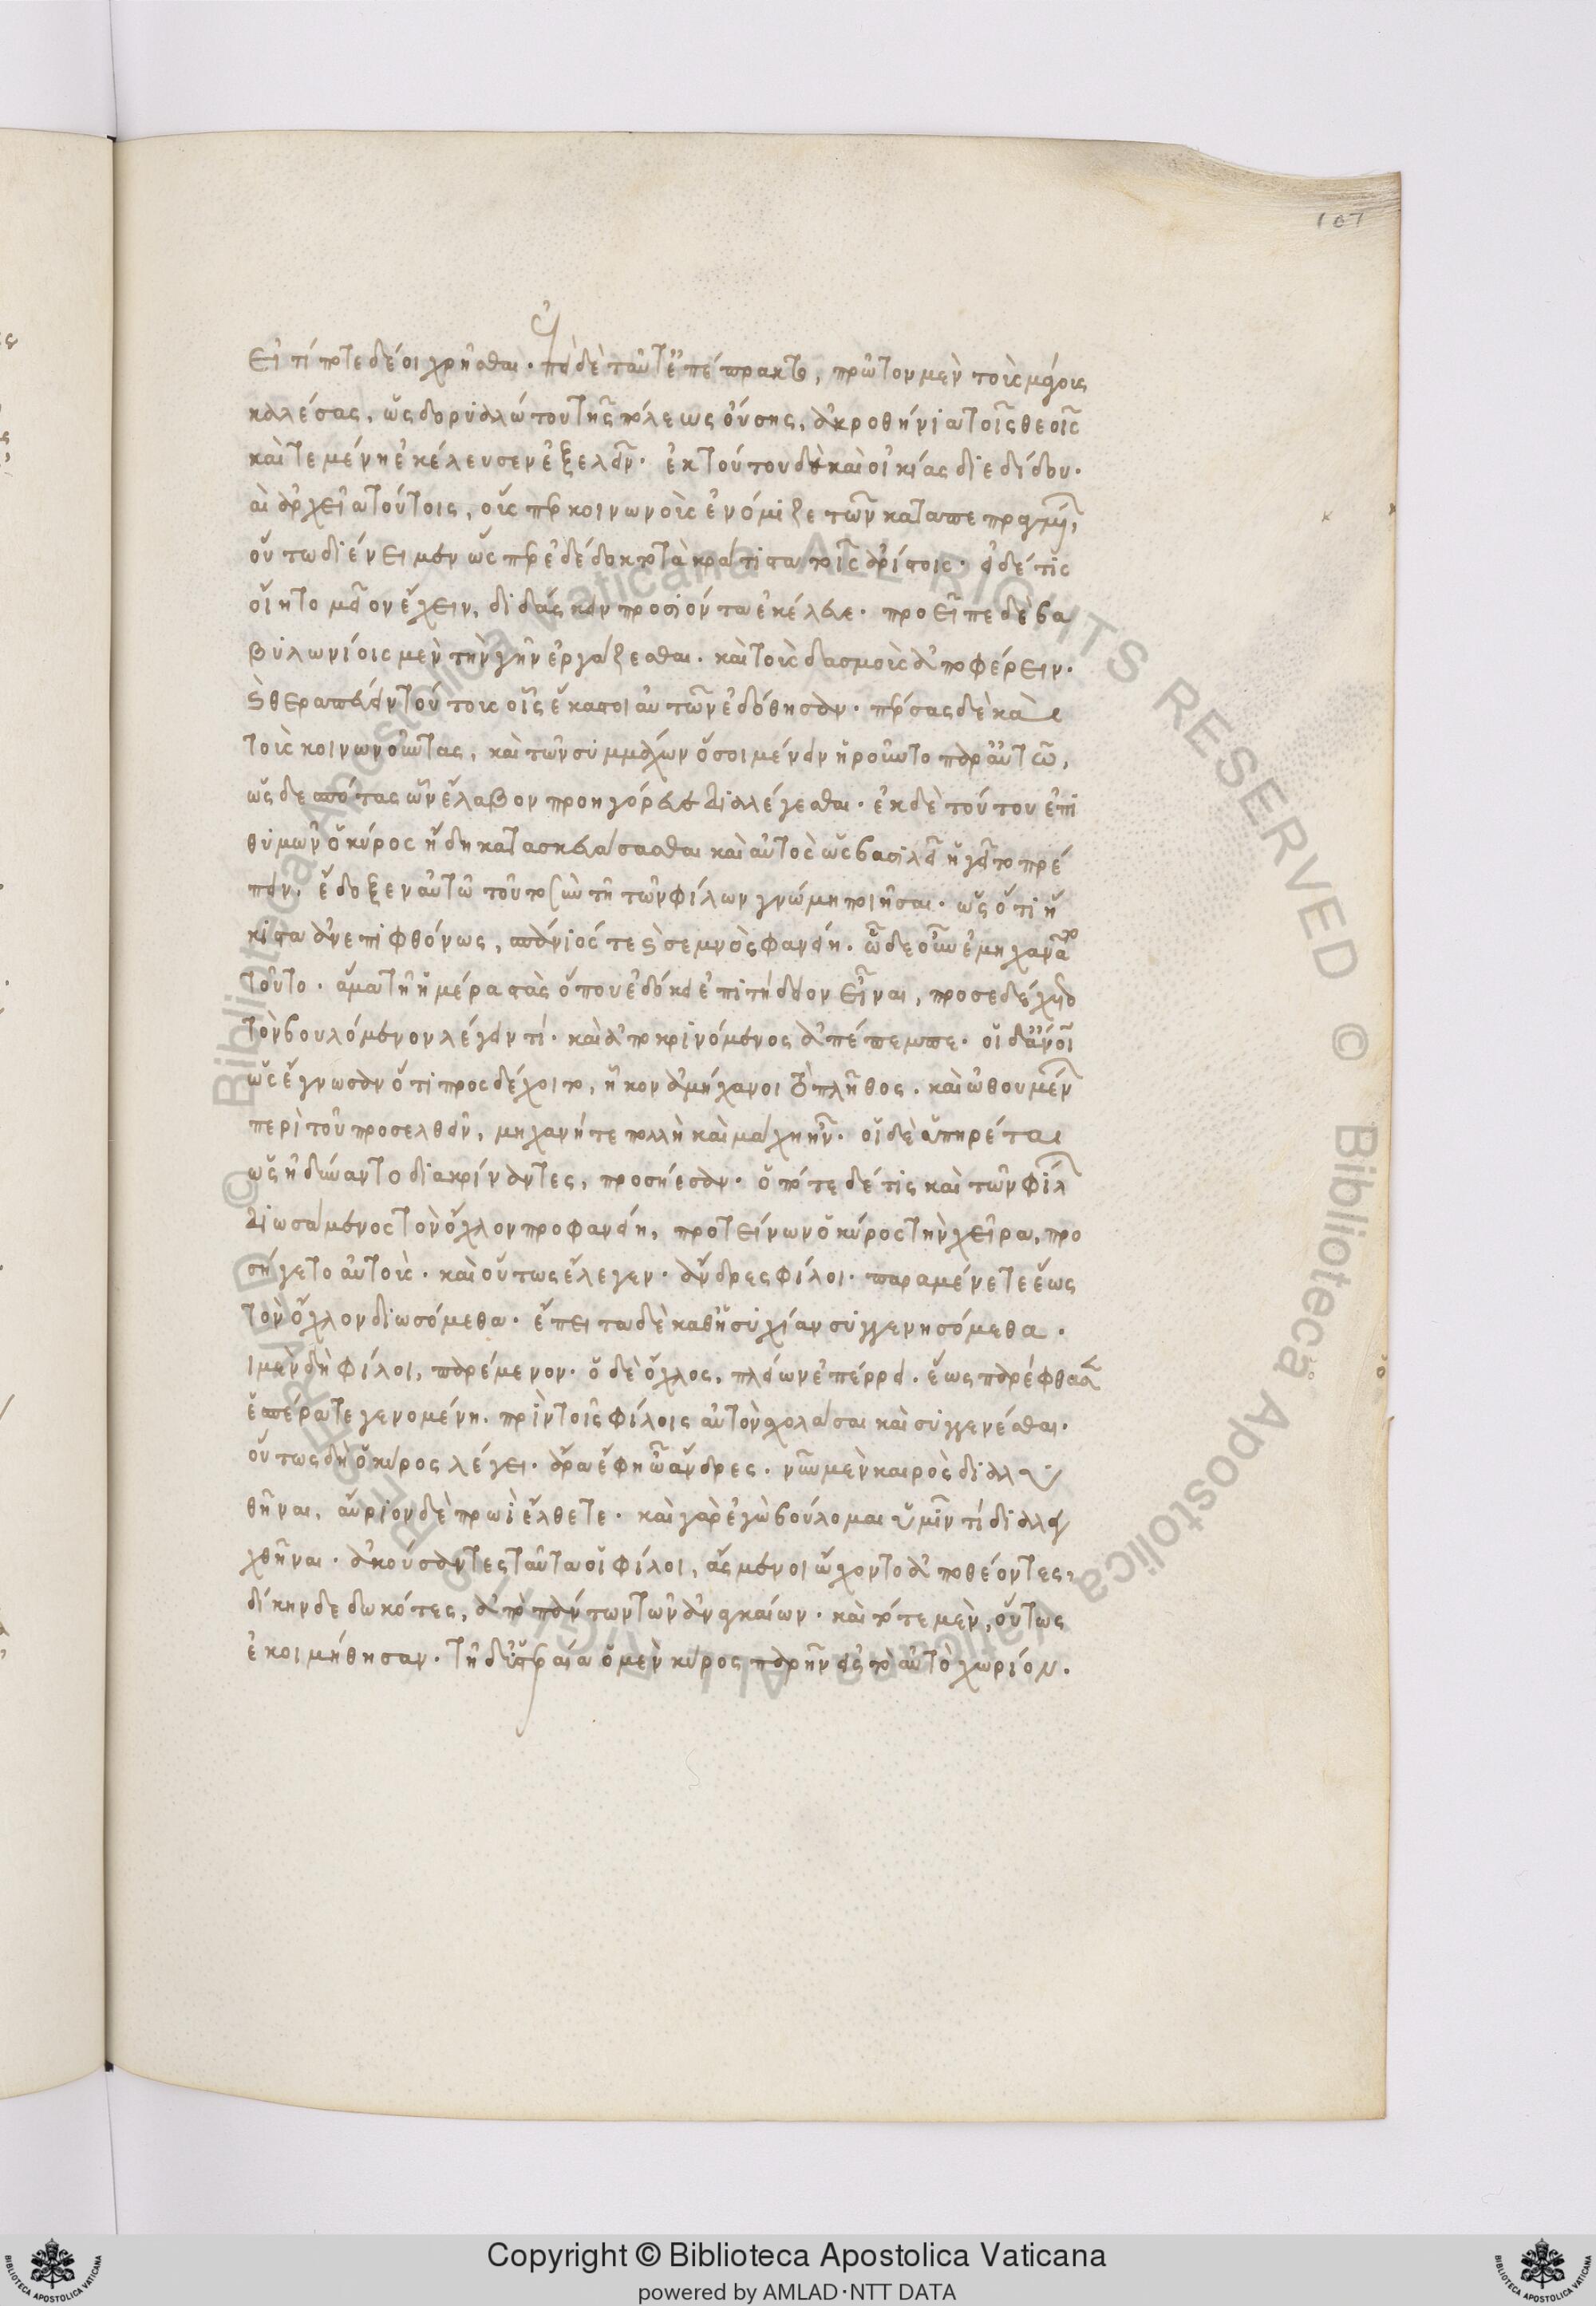 107
εἴ τί ποτε δέοι χρῆσθαι. ἐπεὶ δὲ ταῦτ' ἐπέπρακτο, πρῶτον μὲν τοὺς μάγους
καλέσας, ὡς δορυαλώτου τῆς πόλεως οὔσης, ἀκροθήνια τοῖς θεοῖς
καὶ τεμένη ἐκέλευσεν ἐξελεῖν. ἐκ τούτου δὲ καὶ οἰκίας διεδίδου.
ἀρχεῖα τούτοις, οὓς περ κοινωνοὺς ἐνόμιζε τῶν καταπεπραγμένων,
οὕτω διένειμεν ὥσπερ ἐδέδοκτο τὰ κράτιστα τοῖς ἀρίστοις. εἰ δέ τις
οἴητο μεῖον ἔχειν, διδάσκειν προσιόντα ἐκέλευε. προεῖπε δὲ βα
βυλωνίοις μὲν τὴν γῆν ἐργάζεσθαι. καὶ τοὺς δασμοὺς ἀποφέρειν.
καὶ θεραπεύειν τούτους οἷς ἕκαστοι αὐτῶν ἐδόθησαν. πέρσας δὲ καὶ
τοὺς κοινωνοῦντας, καὶ τῶν συμμάχων ὅσοι μένειν ᾑροῦντο παρ' αὐτῶ,
ὡς δεσπότας ὧν ἔλαβον προηγόρευε διαλέγεσθαι. ἐκ δὲ τούτου ἐπι
θυμῶν ὁ κύρος ἤδη κατασκευάσασθαι καὶ αὐτὸς ὡς βασιλεῖ ἡγεῖτο πρέ
πειν, ἔδοξεν αὐτῶ τοῦτο σὺν τῆ τῶν φίλων γνώμη ποιῆσαι. ὡς ὅτι ἥ
κιστα ἀνεπιφθόνως, σπάνιός τε καὶ σεμνὸς φανείη. ὧδε οὖν ἐμηχανᾶτο
τοῦτο. ἅμα τῆ ἡμέρα στὰς ὅπου ἐδόκει ἐπιτήδειον εἶναι, προσεδέχετο
τὸν βουλόμενον λέγειν τί. καὶ ἀποκρινόμενος ἀπέπεμπε. οἱ δ' ἄνοι
ὡς ἔγνωσαν ὅτι προσδέχοιτο, ἧκον ἀμήχανοι τὸ πλῆθος. καὶ ὠθουμένων
περὶ τοῦ προσελθεῖν, μηχανή τε πολλὴ καὶ μάχη ἦν. οἱ δὲ ὑπηρέται
ὡς ἠδύναντο διακρίναντες, προσήεσαν. ὁπότε δέ τις καὶ τῶν φίλων
διωσάμενος τὸν ὄχλον προφανείη, προτείνων ὁ κύρος τὴν χεῖρα, προ
σήγετο αὐτοὺς. καὶ οὕτως ἔλεγεν. ἄνδρες φίλοι. παραμένετε ἕως
τὸν ὄχλον διωσόμεθα. ἔπειτα δὲ καθ' ἡσυχίαν συγγενησόμεθα.
ι μὲν δὴ φίλοι, παρέμενον. ὁ δὲ ὄχλος, πλείων ἐπέρρει. ἕως παρέφθασεν
ἑσπέρα τε γενομένη. πρὶν τοῖς φίλοις αὐτὸν σχολάσαι καὶ συγγενέσθαι.
οὕτως δὴ ὁ κύρος λέγει. ἆρα ἔφη ὦ ἄνδρες. νῦν μὲν καιρὸς διαλυ
θῆναι, αὔριον δὲ πρωὶ ἔλθετε. καὶ γὰρ ἐγὼ βούλομαι ὑμῖν τί διαλε
χθῆναι. ἀκούσαντες ταῦτα οἱ φίλοι, ἄσμενοι ὤχοντο ἀποθέοντες,
δίκην δεδωκότες, ἀπὸ πάντων τῶν ἀναγκαίων. καὶ τότε μὲν, οὕτως
ἐκοιμήθησαν. τῆ δ' ὑστεραία ὁ μὲν κύρος παρῆν εἰς τὸ αὐτὸ χωρίον.
© Biblioteca Apostolica Vaticana ALL RIGHTS RESERVED
Copyright © Biblioteca Apostolica Vaticana
powered by AMLAD·NTT DATA